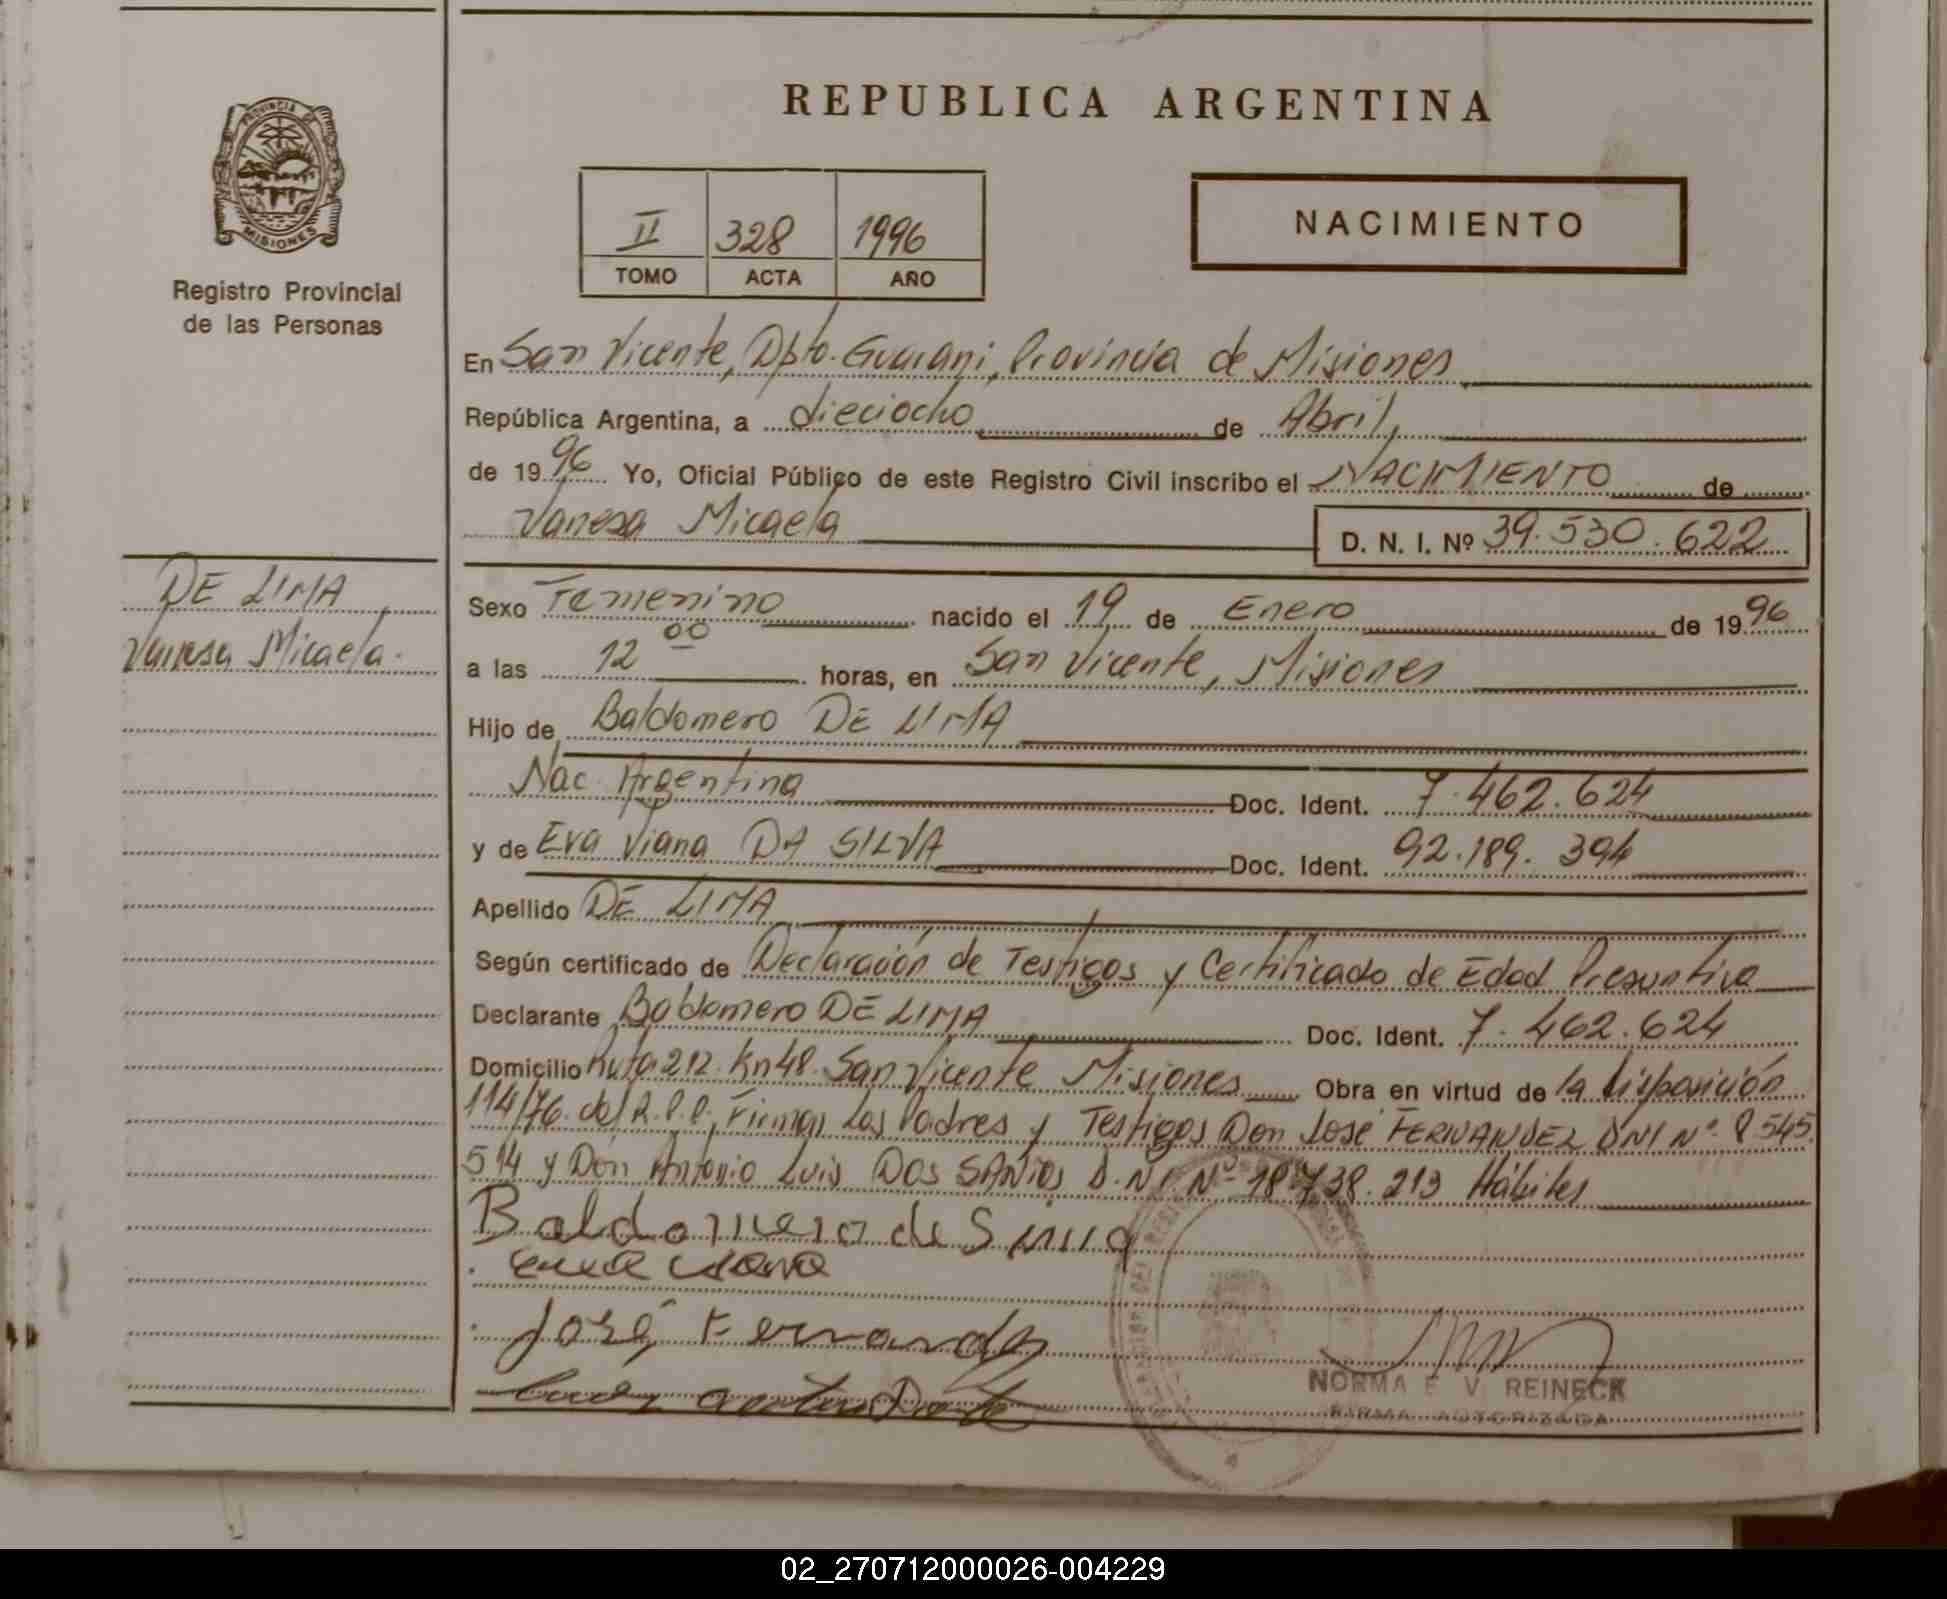 REPUBLICA ARGENTINA
PROVINCIA DE
MISIONES
Registro Provincial
de las Personas
II 328 1996
TOMO ACTA AÑO
NACIMIENTO
En San Vicente, Dpto. Guarani, Provincia de Misiones
República Argentina, a dieciocho de Abril,
de 1996 Yo, Oficial Público de este Registro Civil inscribo el NACIMIENTO de
Vanesa Micaela D. N. I. Nº 39.530.622
DE LIMA
Vanesa Micaela.
Sexo Femenino nacido el 19 de Enero de 1996
a las 12 00 horas, en San Vicente, Misiones
Hijo de Baldomero DE LIMA
Nac. Argentina Doc. Ident. 7.462.624
y de Eva Viana DA SILVA Doc. Ident. 92.189.394
Apellido DE LIMA
Según certificado de Declaración de Testigos y Certificado de Edad Presuntiva
Declarante Baldomero DE LIMA Doc. Ident. 7.462.624
Domicilio Ruta 212. Km 48. San Vicente Misiones Obra en virtud de la disposición
114/76. del R.P.P. Firman Los Padres y Testigos Don José FERNANDEZ DNI Nº 8 545.
514 y Don Antonio Luis DOS SANTOS D.N.I. Nº 18.738.213 Hábiles
Baldomero de Lima
José Fernandez
NORMA E. V. REINECK
FIRMA AUTORIZADA
02_270712000026-004229